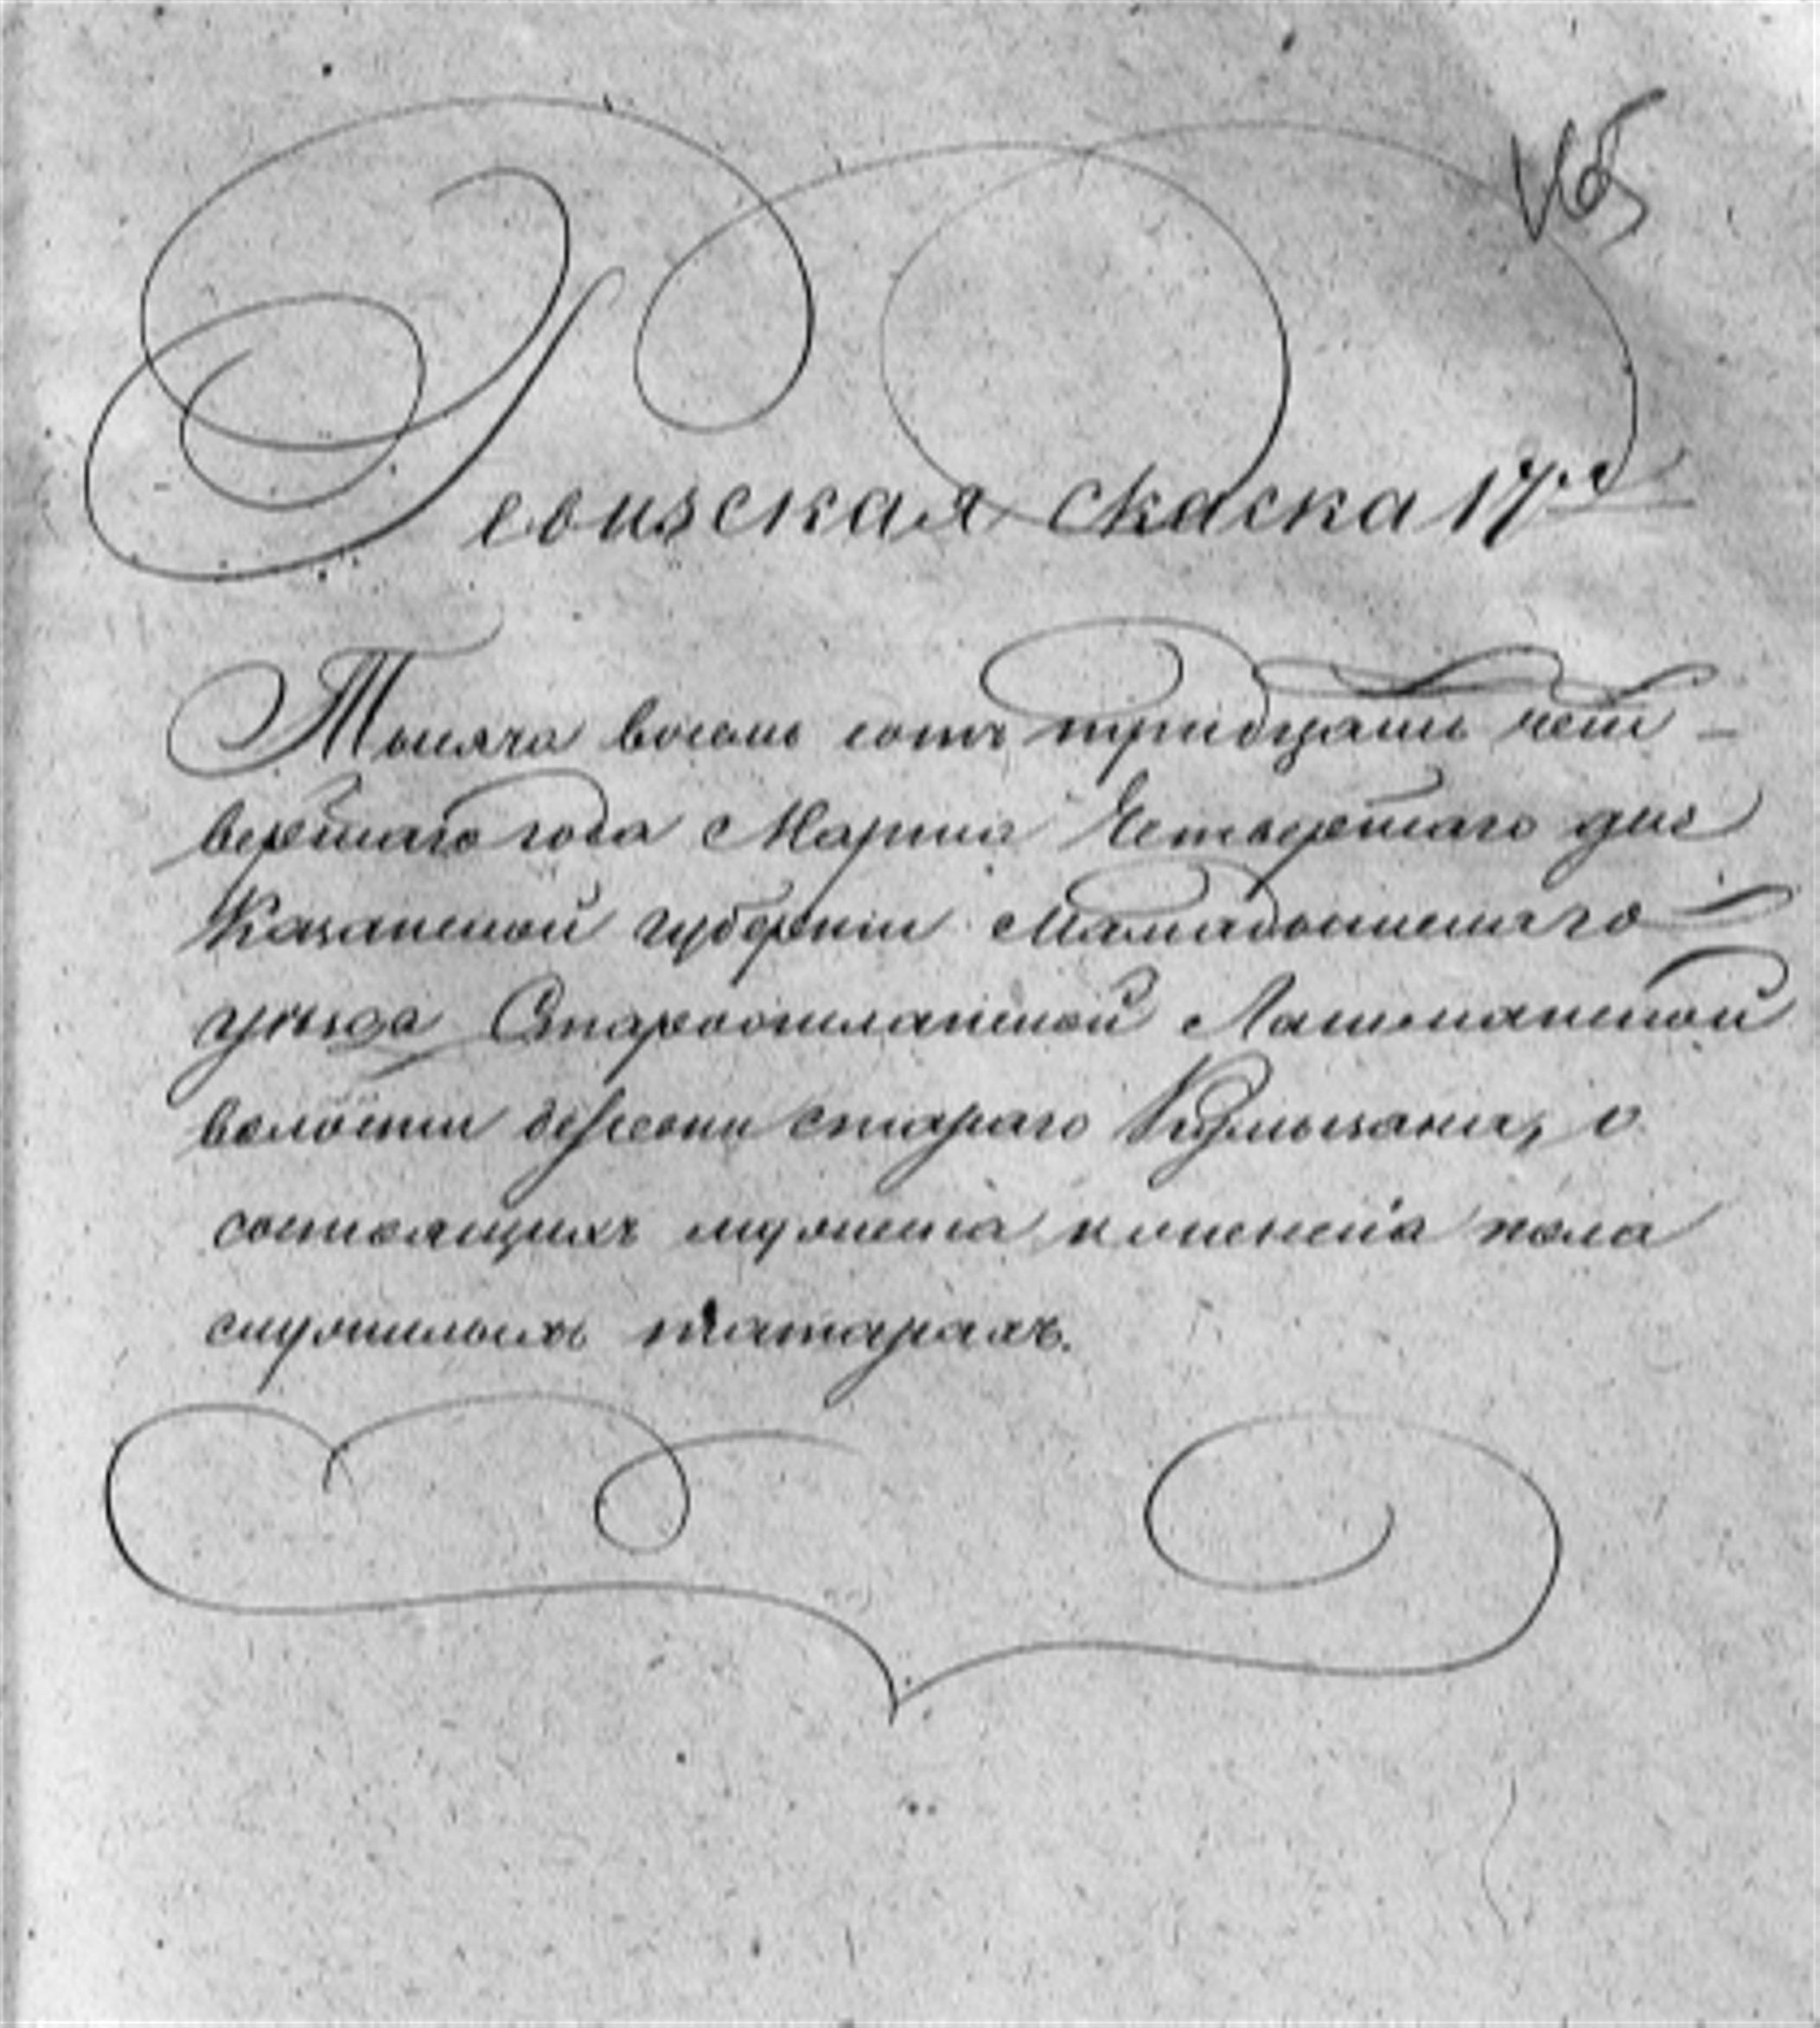 165
Ревизская скаска 17.я
Тысяча восемь сотъ тридцать чет-
вертаго года Марта Четвертаго дня
Казанской губернiи Мамадышскаго
уѣзда Лашманской
волости деревни стараго о
состоящихъ мужеска и женска пола
служилыхъ татарахъ.